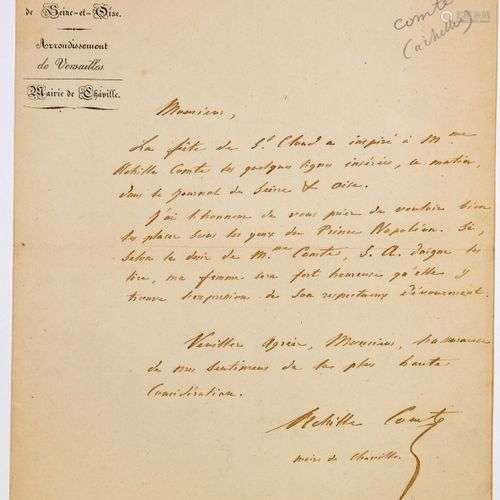 de Seine-et-Oise.
Arrondissement
de Versailles
Mairie de Chaville.
Comte
(achille)
Monsieur,
La fête de St Cloud a inspiré à Mme
Achille Comte les quelques lignes insérées, ce matin,
dans le Journal de Seine & Oise.
J'ai l'honneur de vous prier de vouloir bien
les placer sous les yeux du Prince Napoléon. Si,
selon le désir de Mme Comte, S. A. daigne les
lire, ma femme sera fort heureuse qu'elle y
trouve l'expression de son respectueux dévouement.
Veuillez agréer, Monsieur, l'assurance
de mes sentimens de la plus haute
Considération.
Achille Comte
maire de Chaville.